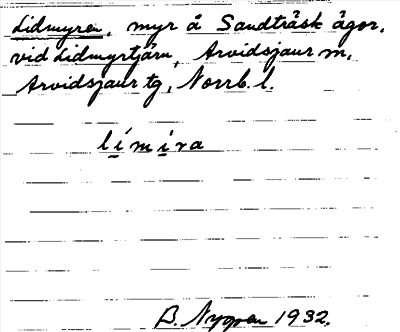 Lidmyren, myr å Sandträsk ägor,
vid Lidmyrtjärn, Arvidsjaur m,
Arvidsjaur tg, Norrb. l.
límira
B. Nygren 1932.